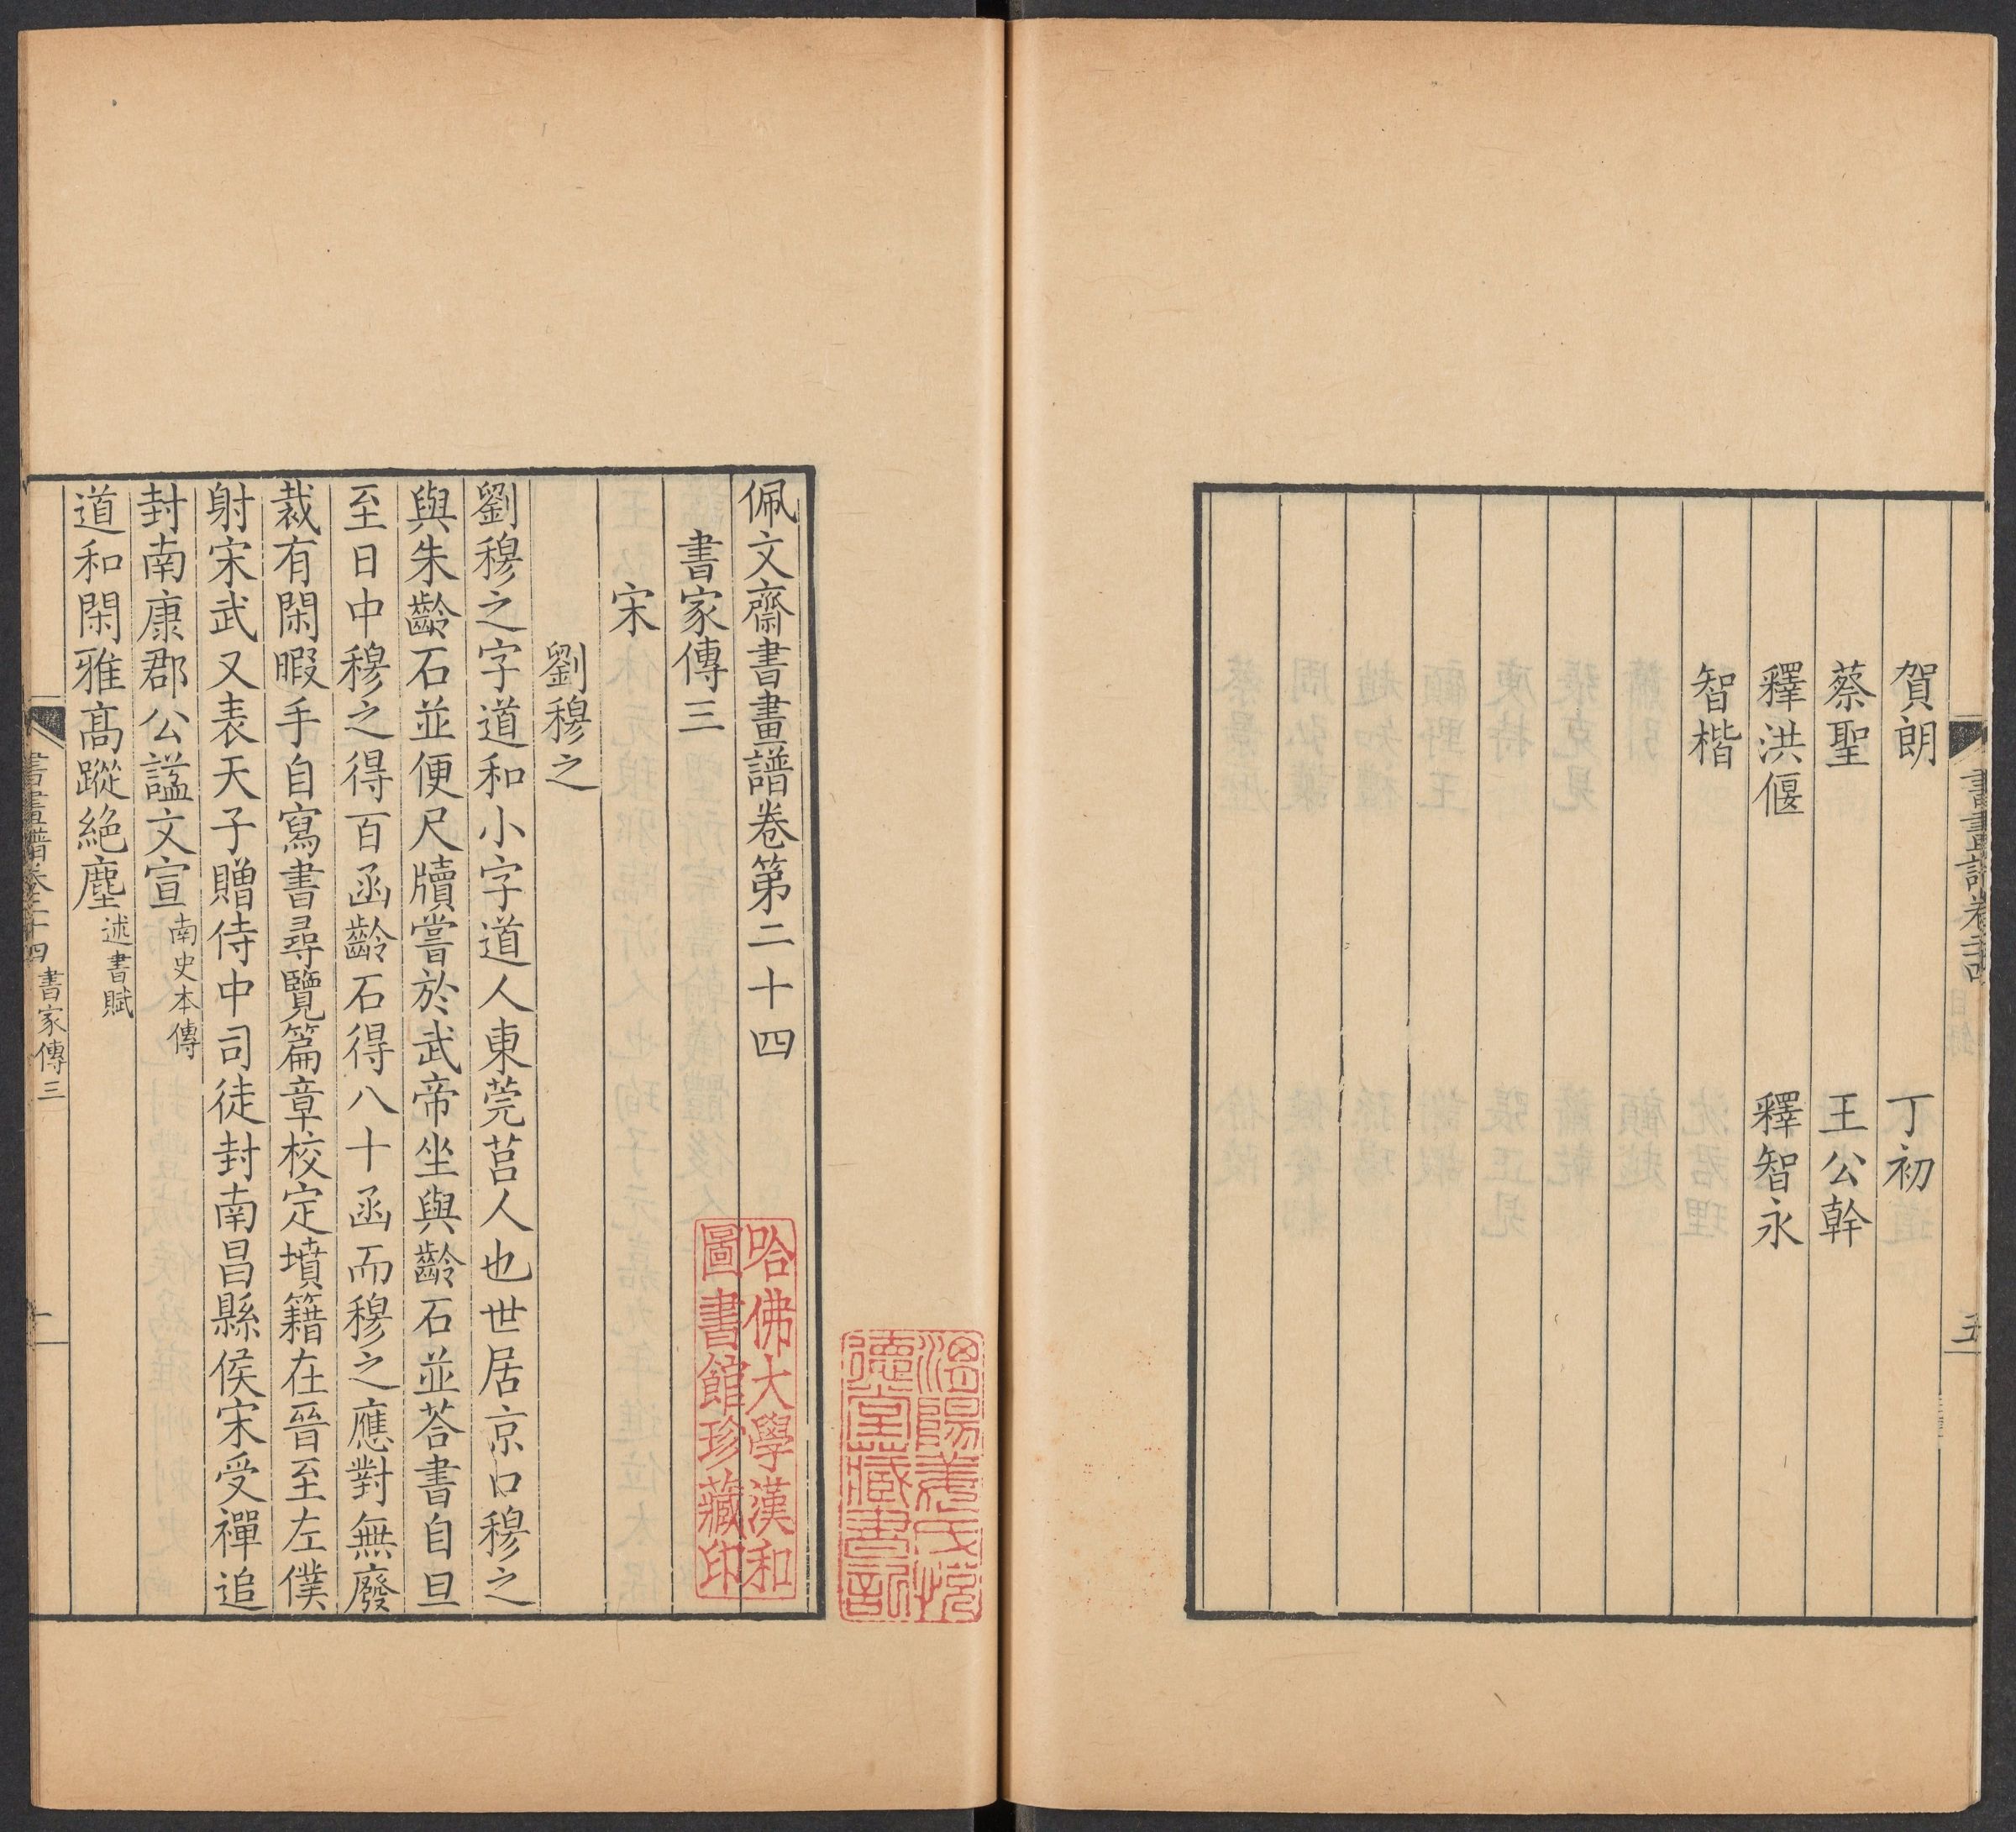 賀朗 丁初
蔡聖 王公幹
釋洪偃 釋智永
智楷
五
佩文齋書畫譜卷第二十四
書家傳三
宋
劉穆之
劉穆之字道和小字道人東莞莒人也世居京口穆之
與朱齡石並便尺牘嘗於武帝坐與齡石並荅書自旦
至日中穆之得百函齡石得八十函而穆之應對無廢
裁有閑暇手自寫書尋覽篇章校定墳籍在晉至左僕
射宋武又表天子贈侍中司徒封南昌縣侯宋受禪追
封南康郡公諡文宣南史本傳
道和閑雅高蹤絕塵述書賦
書畫譜卷二十四 書家傳三 一
哈佛大學漢和
圖書館珍藏印
德堂藏書記